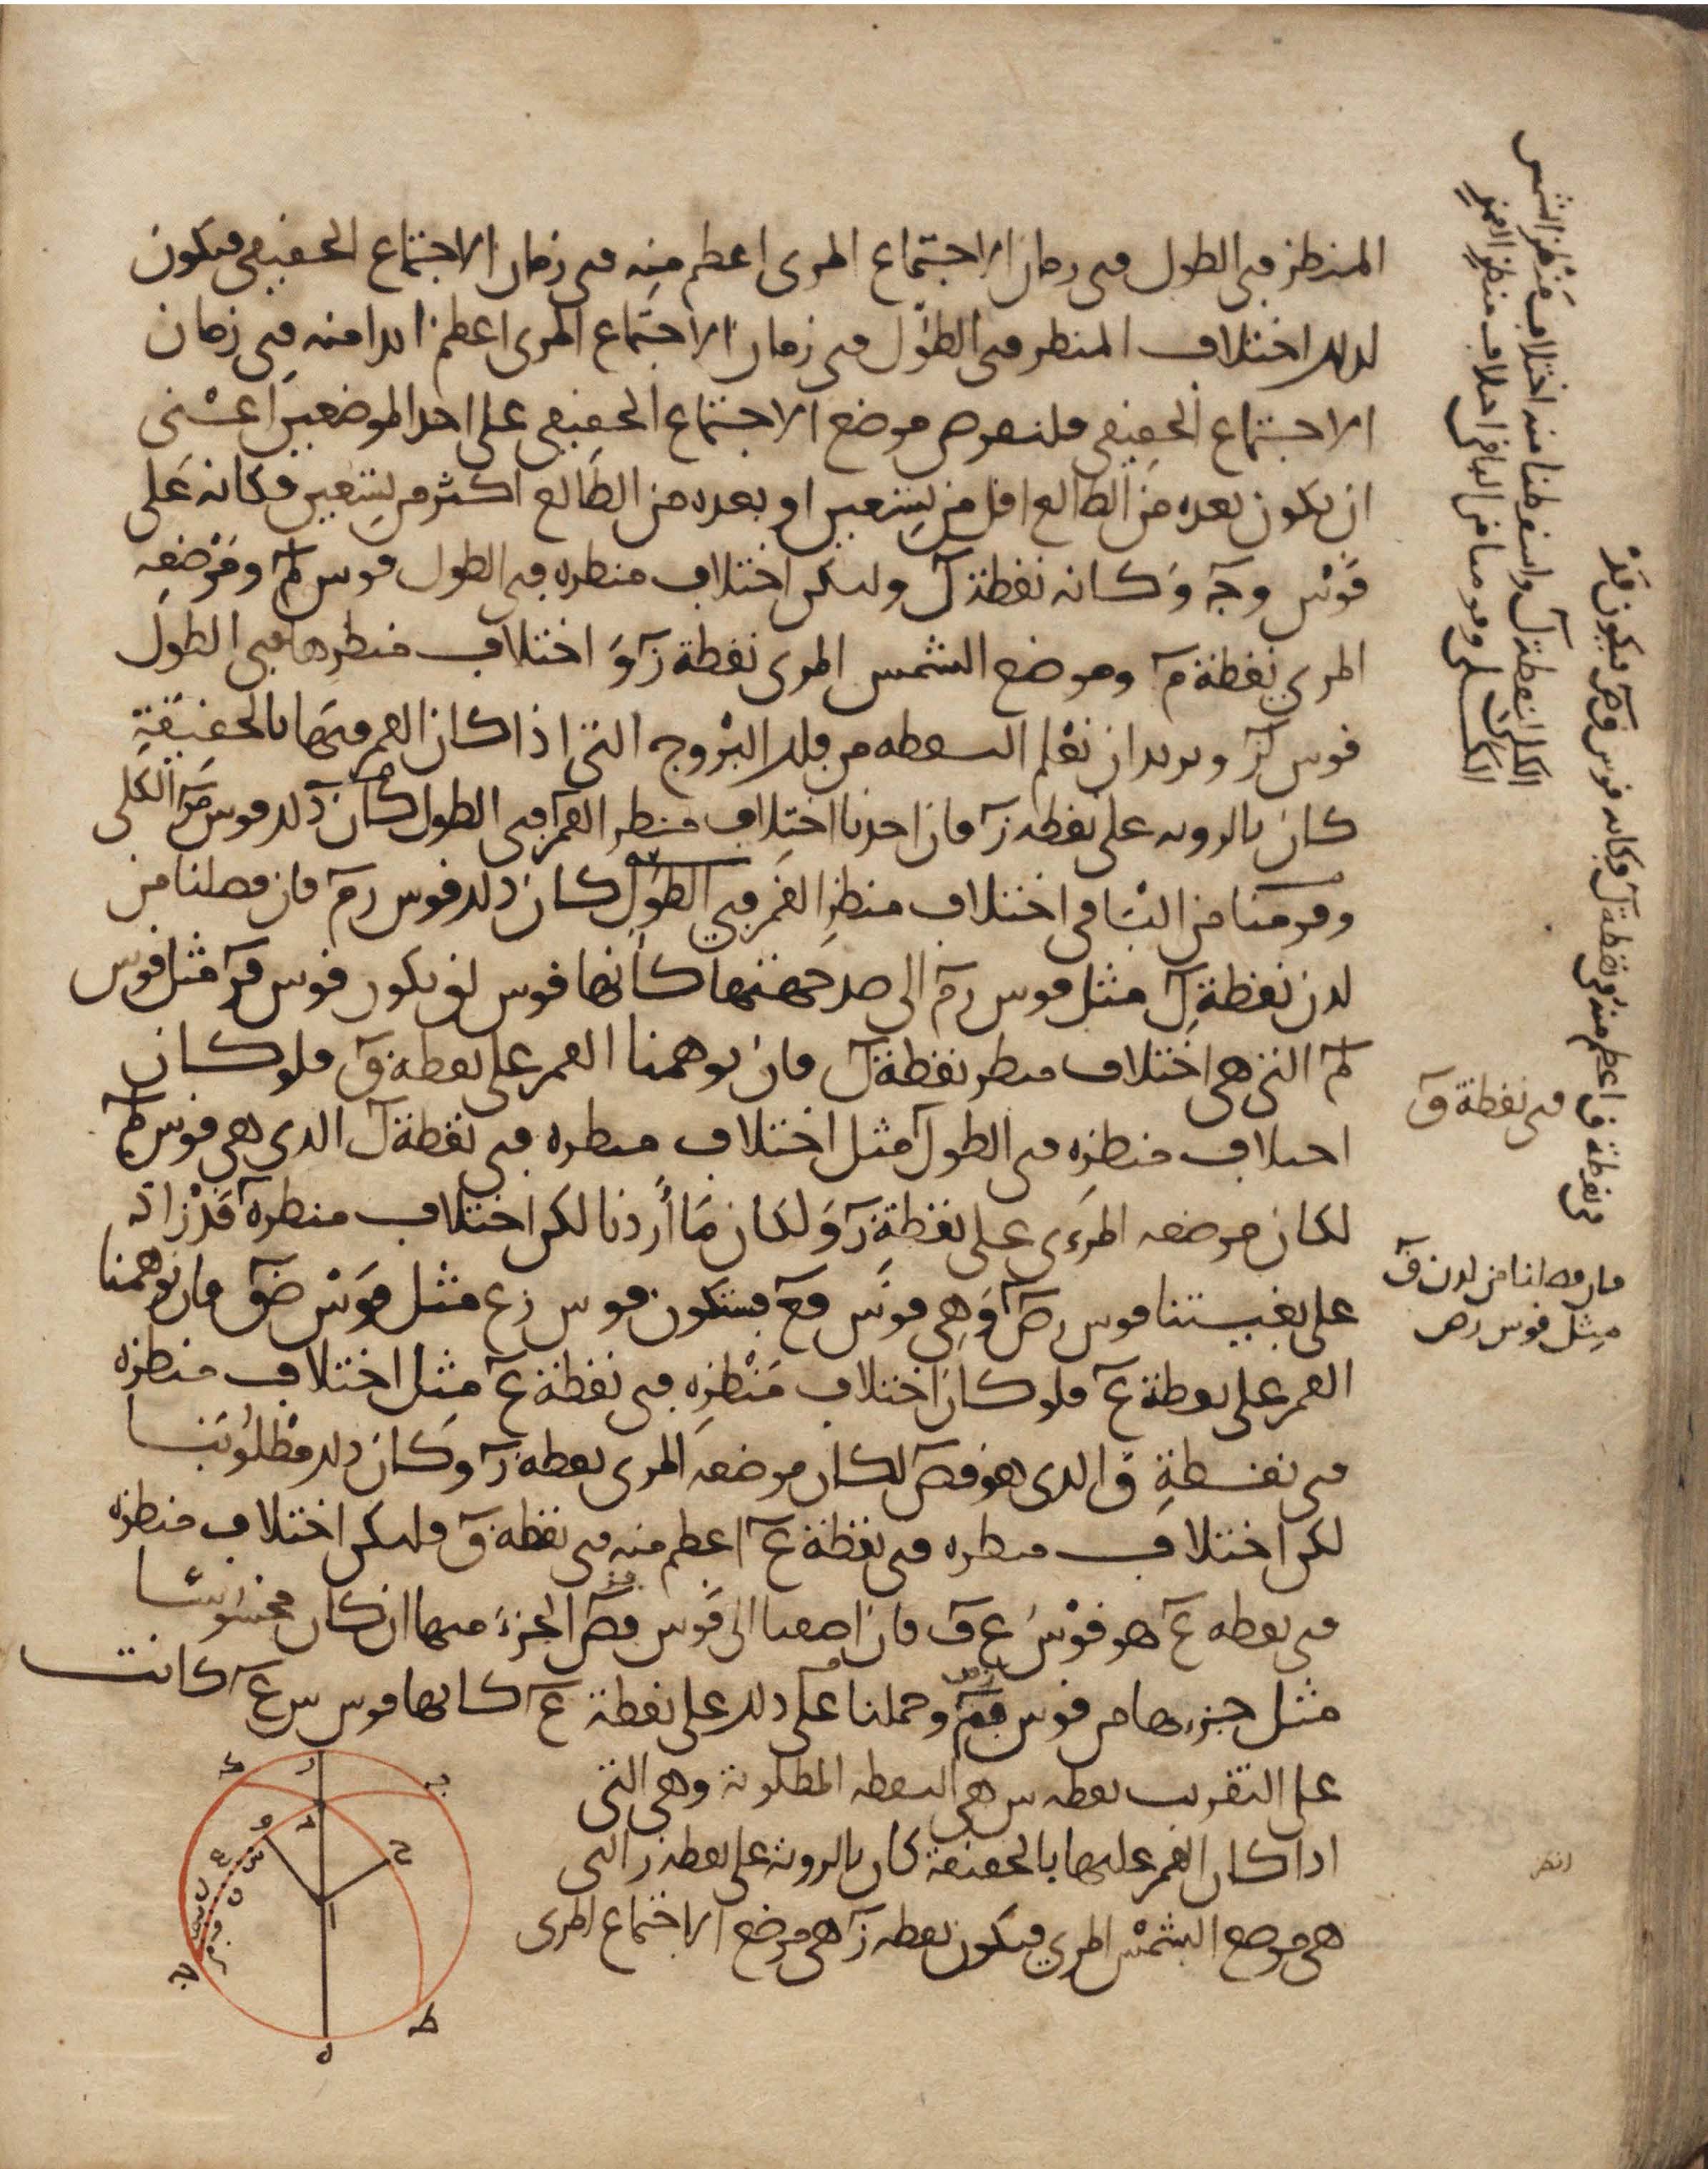 المنظر في الطول في زمان الاجتماع المرى اعظم منه في زمان الاجتماع الحقيقي فيكون
لذلك اختلاف المنظر في الطول في زمان الاجتماع المرى اعظم ابدا منه في زمان
الاجتماع الحقيقي فلنفرض موضع الاجتماع الحقيقي على احد الموضعين اعنى
ان يكون بعده من الطالع اقل من تسعين او بعده من الطالع اكثر من تسعين فكانه على
قوس وج وكانه نقطة ل وليكن اختلاف منظره في الطول قوس لم وموضعه
المرى نقطة م وموضع الشمس المرى نقطة ز و اختلاف منظرها في الطول
قوس لز ونريد ان نعلم النقطه من فلك البروج التى اذا كان القمر فيها بالحقيقة
كان بالرويه على نقطه ز فان اخذنا اختلاف منظر القمر في الطول كان ذلك قوس الكلى
وقومنا من الباقى اختلاف منظر القمر في الطول كان ذلك قوس زم فان فصلنا من
لدن نقطة ل مثل قوس زم الى ضد جهتها كانها قوس لق يكون قوس قز مثل قوس
لم التى هي اختلاف منظر نقطة ل فان توهمنا القمر على نقطة ق فلو كان
اختلاف منظره في الطول مثل اختلاف منظره في نقطة ل الذى هي قوس لم
لكان موضعه المرءى على نقطة ز ولكان ما اردنا لكن اختلاف منظره قد زاد
على بغيتنا قوس رص وهي قوس قع فستكون قوس زع مثل قوس صق فان توهمنا
القمر على نقطة ع فلو كان اختلاف منظره في نقطة ع مثل اختلاف منظره
في نقطة ق الذى هو قص لكان موضعه المرى نقطة ز وكان ذلك مطلوبنا
لكن اختلاف منظره في نقطة ع اعظم منه في نقطة ق فليكن اختلاف منظره
في نقطه ع هو قوس ع ف فان اضفنا الى قوس قص الجزء منها ان كان محسوسا
مثل جزءها من قوس وحملنا على ذلك على نقطة ع كانها قوس س ع كانت
على التقريب نقطه س هي النقطه المطلوبة وهي التى
اذا كان القمر عليها بالحقيقة كان بالروية على نقطه ز التى
هي موضع الشمس المرى فيكون نقطه ز هي موضع الاجتماع المرى
الكلى لنقطة ل واسقطنا منه اختلاف منظر الشمس
الكلى وقومنا من الباقى اختلاف منظر القمر
من نقطة ق اعظم منه نقطة ل وكانه قوس فيكون قد
في نقطة ق
فان فصلنا من لدن ق
مثل قوس رص
انظر
ك
ز
ب
د
و
ح
س
ع
ا
ط
ه